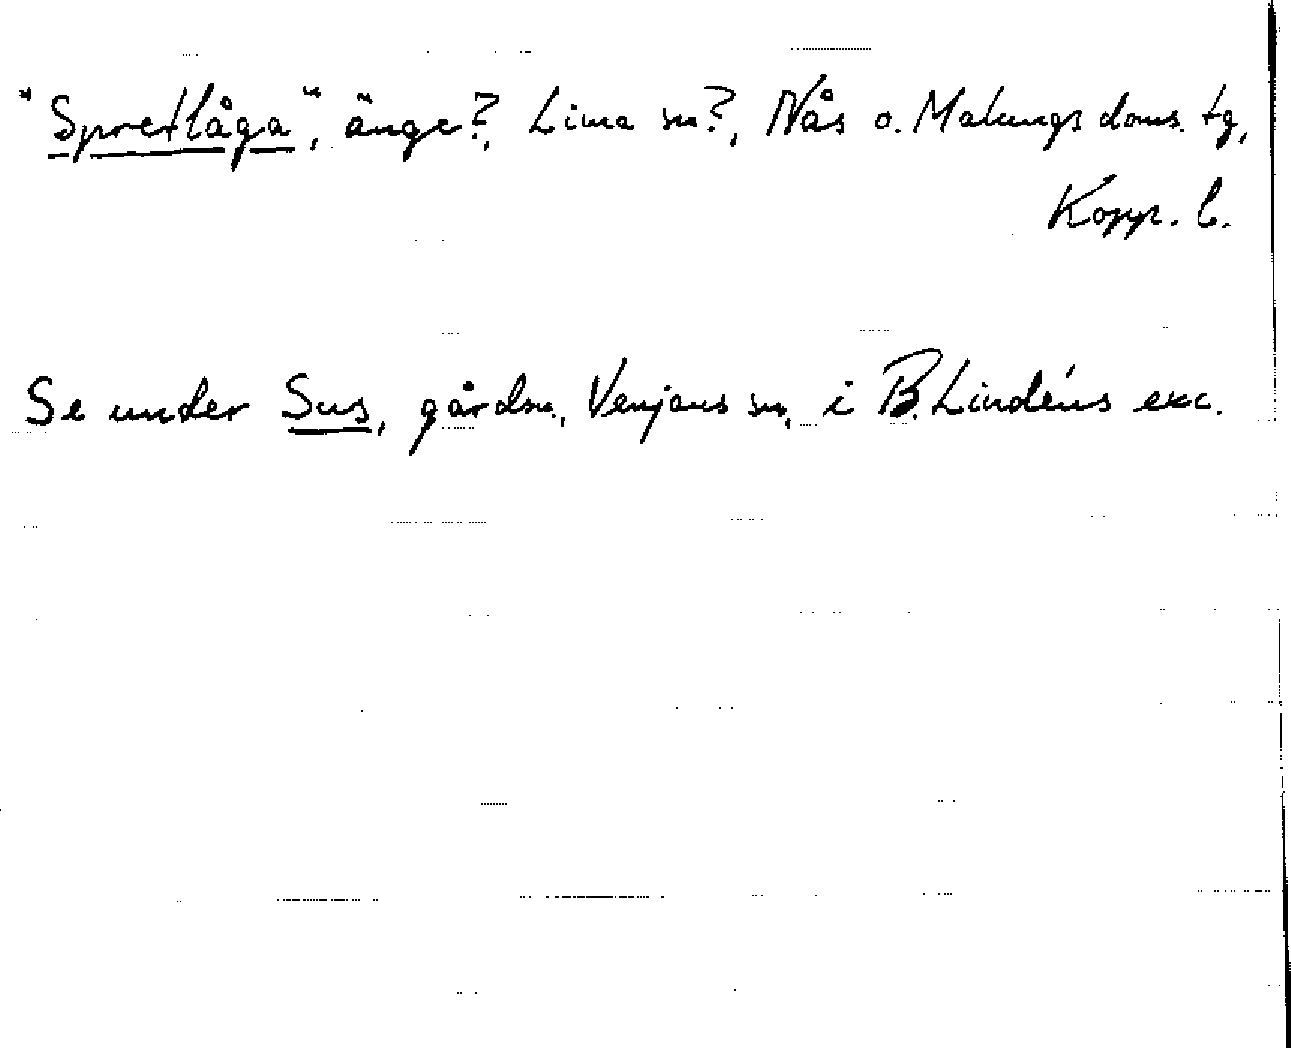 "Spretlåga", änge?, Lima sn?, Nås o. Malungs doms. tg,
Kopp. l.
Se under Sus, gårdsn., Venjans sn, i B. Lindéns exc.